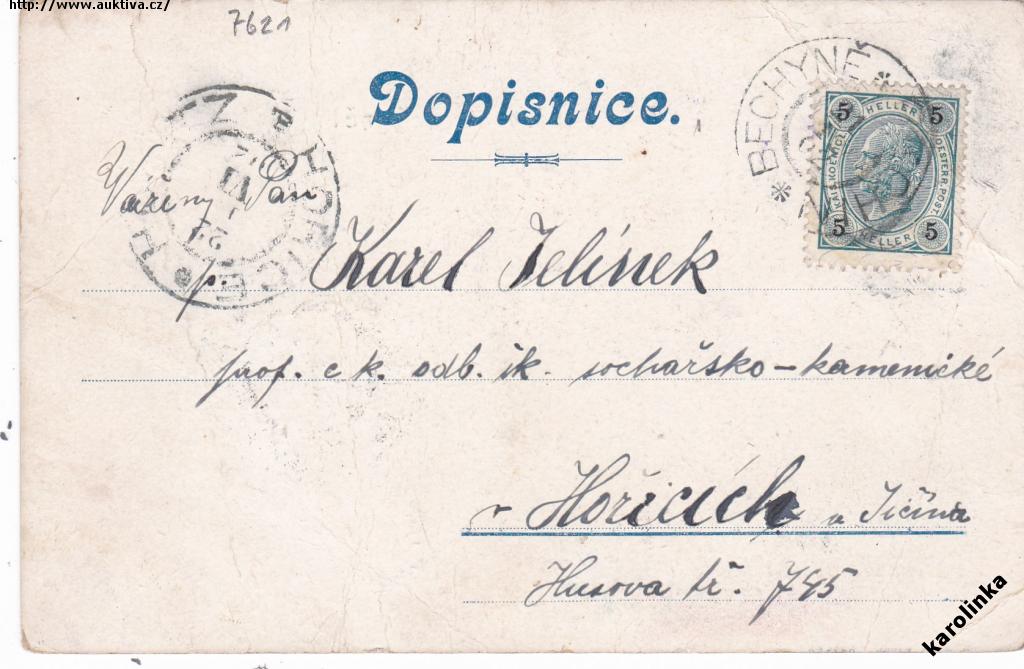 http://www.auktiva.cz/
7621
Dopisnice.
BECHYNĚ
5 HELLER 5
KAIS. KÖNIGL. OESTERR. POST.
5 HELLER 5
HOŘICE
Vážený Pán
p. Karel Jelínek
prof. c k. odb. šk. sochařsko-kamenické
v Hořicích u Jičína
Husova tř. 745
karolinka